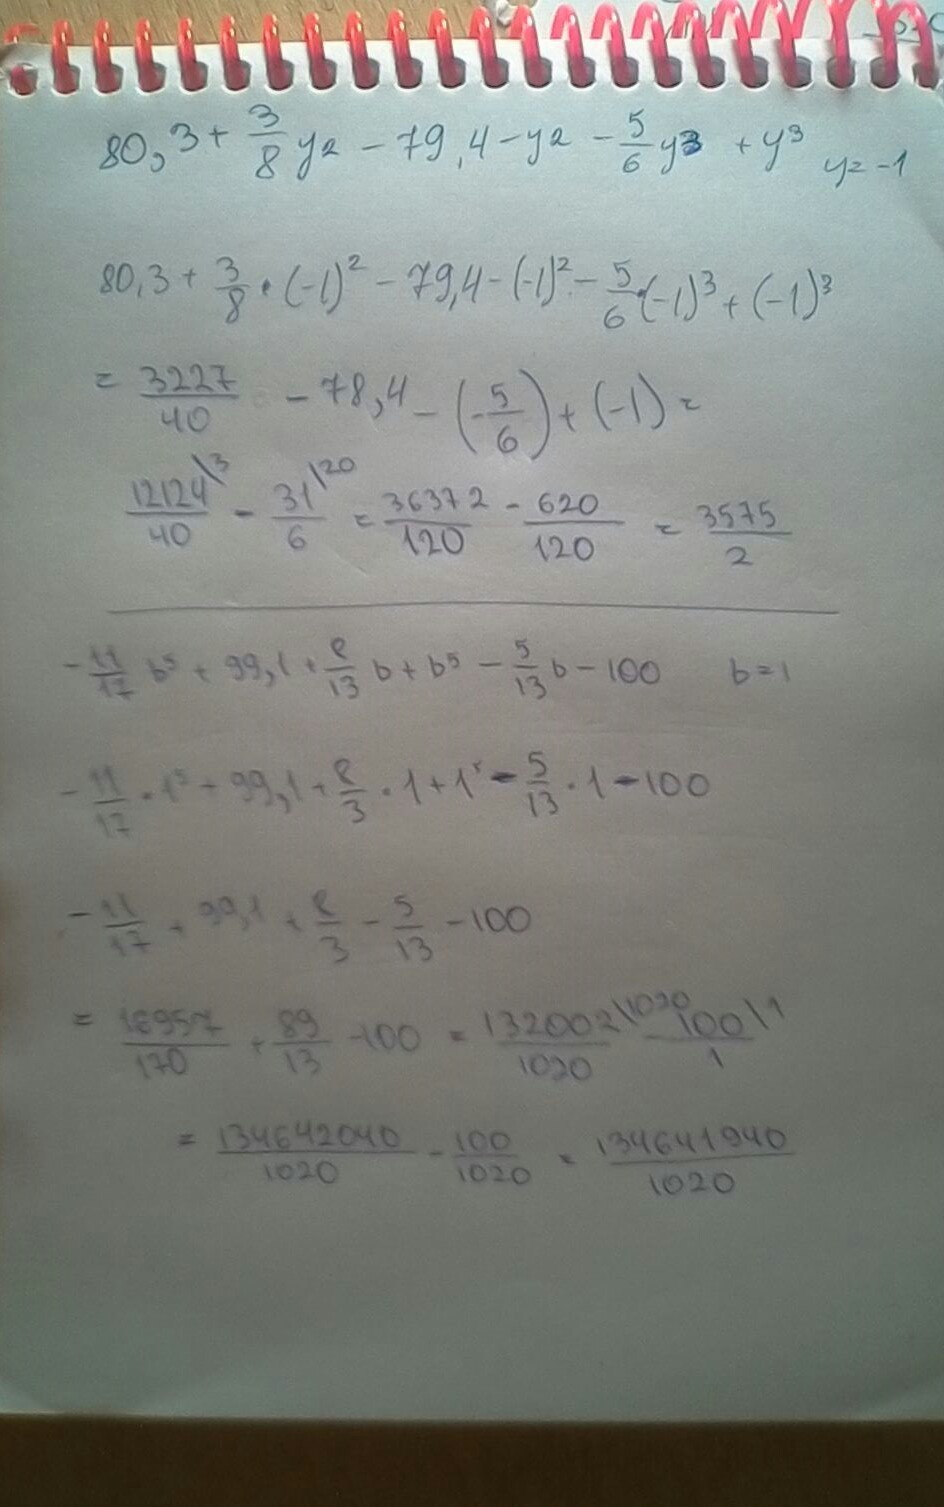 80,3 + 3/8 y2 - 79,4 - y2 - 5/6 y3 + y³ y=-1
80,3 + 3/8 · (-1)² - 79,4 - (-1)² - 5/6 · (-1)³ + (-1)³
= 3227/40 - 78,4 - (-5/6) + (-1) =
12124/40 \3 - 31/6 \20 = 36372/120 - 620/120 = 3575/2
- 11/17 b⁵ + 99,1 + 8/13 b + b⁵ - 5/13 b - 100 b=1
- 11/17 · 1⁵ + 99,1 + 8/3 · 1 + 1⁵ - 5/13 · 1 - 100
- 11/17 + 99,1 + 8/3 - 5/13 - 100
= 16957/170 + 89/13 - 100 = 132002/1020 \1020 - 100/1 \1
= 134642040/1020 - 100/1020 = 134641940/1020